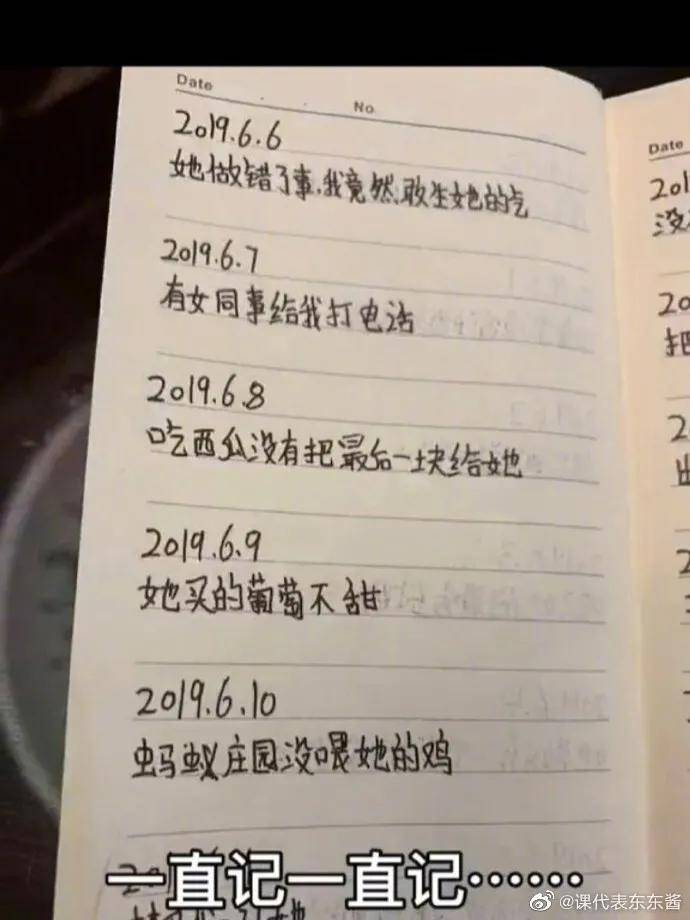 Date
No.
2019.6.6
她做错了事,我竟然敢生她的气
2019.6.7
有女同事给我打电话
2019.6.8
吃西瓜没有把最后一块给她
2019.6.9
她买的葡萄不甜
2019.6.10
蚂蚁庄园没喂她的鸡
Date
201
没
20
把
2
出
2
一直记一直记……
@课代表东东酱